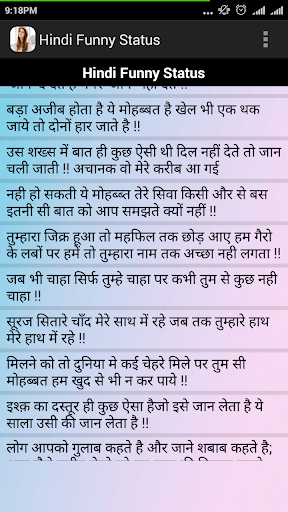 9:18PM
Hindi Funny Status
Hindi Funny Status
बड़ा अजीब होता है ये मोहब्बत है खेल भी एक थक
जाये तो दोनों हार जाते है !!
उस शख्स में बात ही कुछ ऐसी थी दिल नहीं देते तो जान
चली जाती !! अचानक वो मेरे करीब आ गई
नही हो सकती ये मोहब्ब्त तेरे सिवा किसी और से बस
इतनी सी बात को आप समझते क्यों नहीं !!
तुम्हारा जिक्र हूआ तो महफिल तक छोड़ आए हम गैरो
के लबों पर हमें तो तुम्हारा नाम तक अच्छा नही लगता !!
जब भी चाहा सिर्फ तुम्हे चाहा पर कभी तुम से कुछ नही
चाहा !!
सूरज सितारे चाँद मेरे साथ में रहे जब तक तुम्हारे हाथ
मेरे हाथ में रहे !!
मिलने को तो दुनिया मे कई चेहरे मिले पर तुम सी
मोहब्बत हम खुद से भी न कर पाये !!
इश्क़ का दस्तूर ही कुछ ऐसा हैजो इसे जान लेता है ये
साला उसी की जान लेता है !!
लोग आपको गुलाब कहते है और जाने शबाब कहते है;